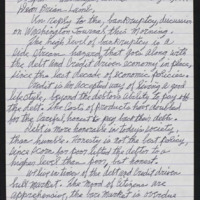 Dear Brian Lamb,
In reply to the bankruptcy discussion
on Washington Journal this morning.
The high level of bankruptcy is a
side
that goes along with
the debt and credit driven economy in place,
since the last decade of economic policies.
Credit is an accepted way of living a good
lifestyle, beyond the debtors ability to pay off
the debt. The costs of products have doubled
for the careful, honest to pay back their debt.
Debt is more honorable in today's society,
than humble. Honesty is not the best policy,
since
for poor, lifted the debtor to a
higher level than poor, but honest.
in times of the debt and credit driven
bull market. The mood of citizens are
apprehensive, the
market is